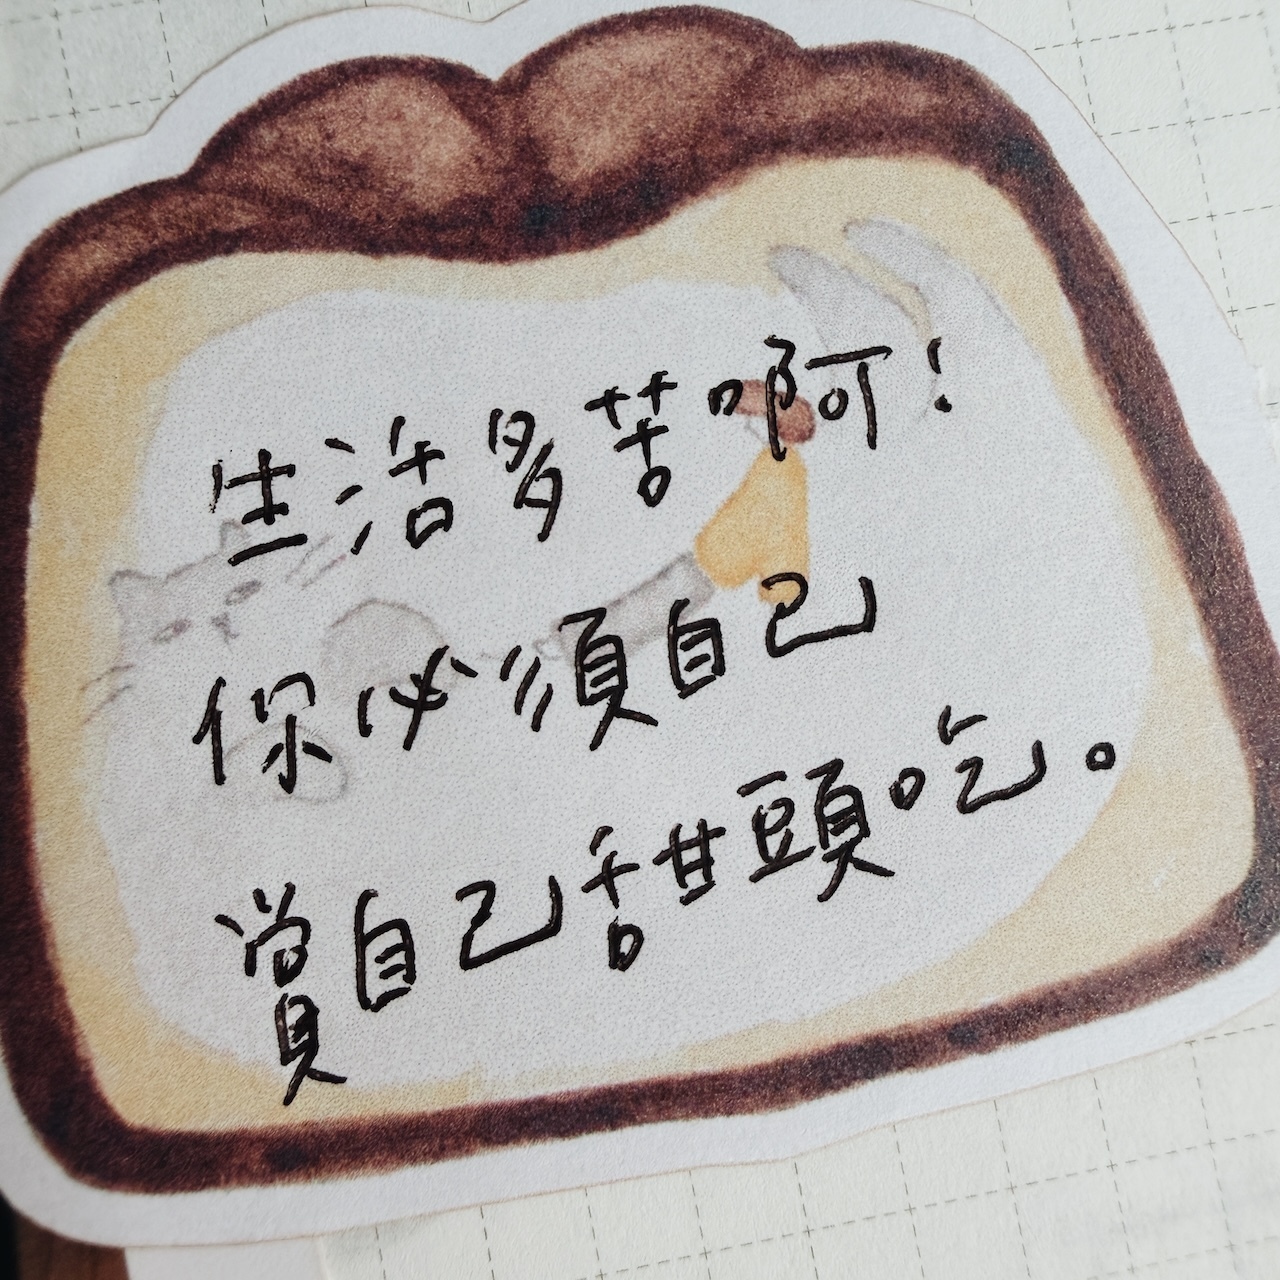 生活多苦啊!
你必須自己
賞自己甜頭吃。